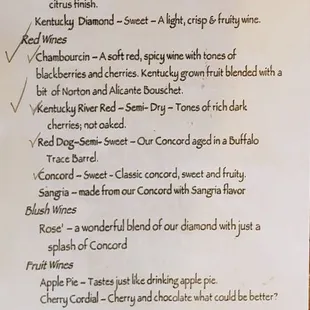 citrus finish.
Kentucky Diamond – Sweet – A light, crisp & fruity wine.
Red Wines
Chambourcin – A soft red, spicy wine with tones of
blackberries and cherries. Kentucky grown fruit blended with a
bit of Norton and Alicante Bouschet.
Kentucky River Red – Semi- Dry – Tones of rich dark
cherries; not oaked.
Red Dog–Semi- Sweet – Our Concord aged in a Buffalo
Trace Barrel.
Concord – Sweet - Classic concord, sweet and fruity.
Sangria – made from our Concord with Sangria flavor
Blush Wines
Rose' – a wonderful blend of our diamond with just a
splash of Concord
Fruit Wines
Apple Pie – Tastes just like drinking apple pie.
Cherry Cordial – Cherry and chocolate what could be better?